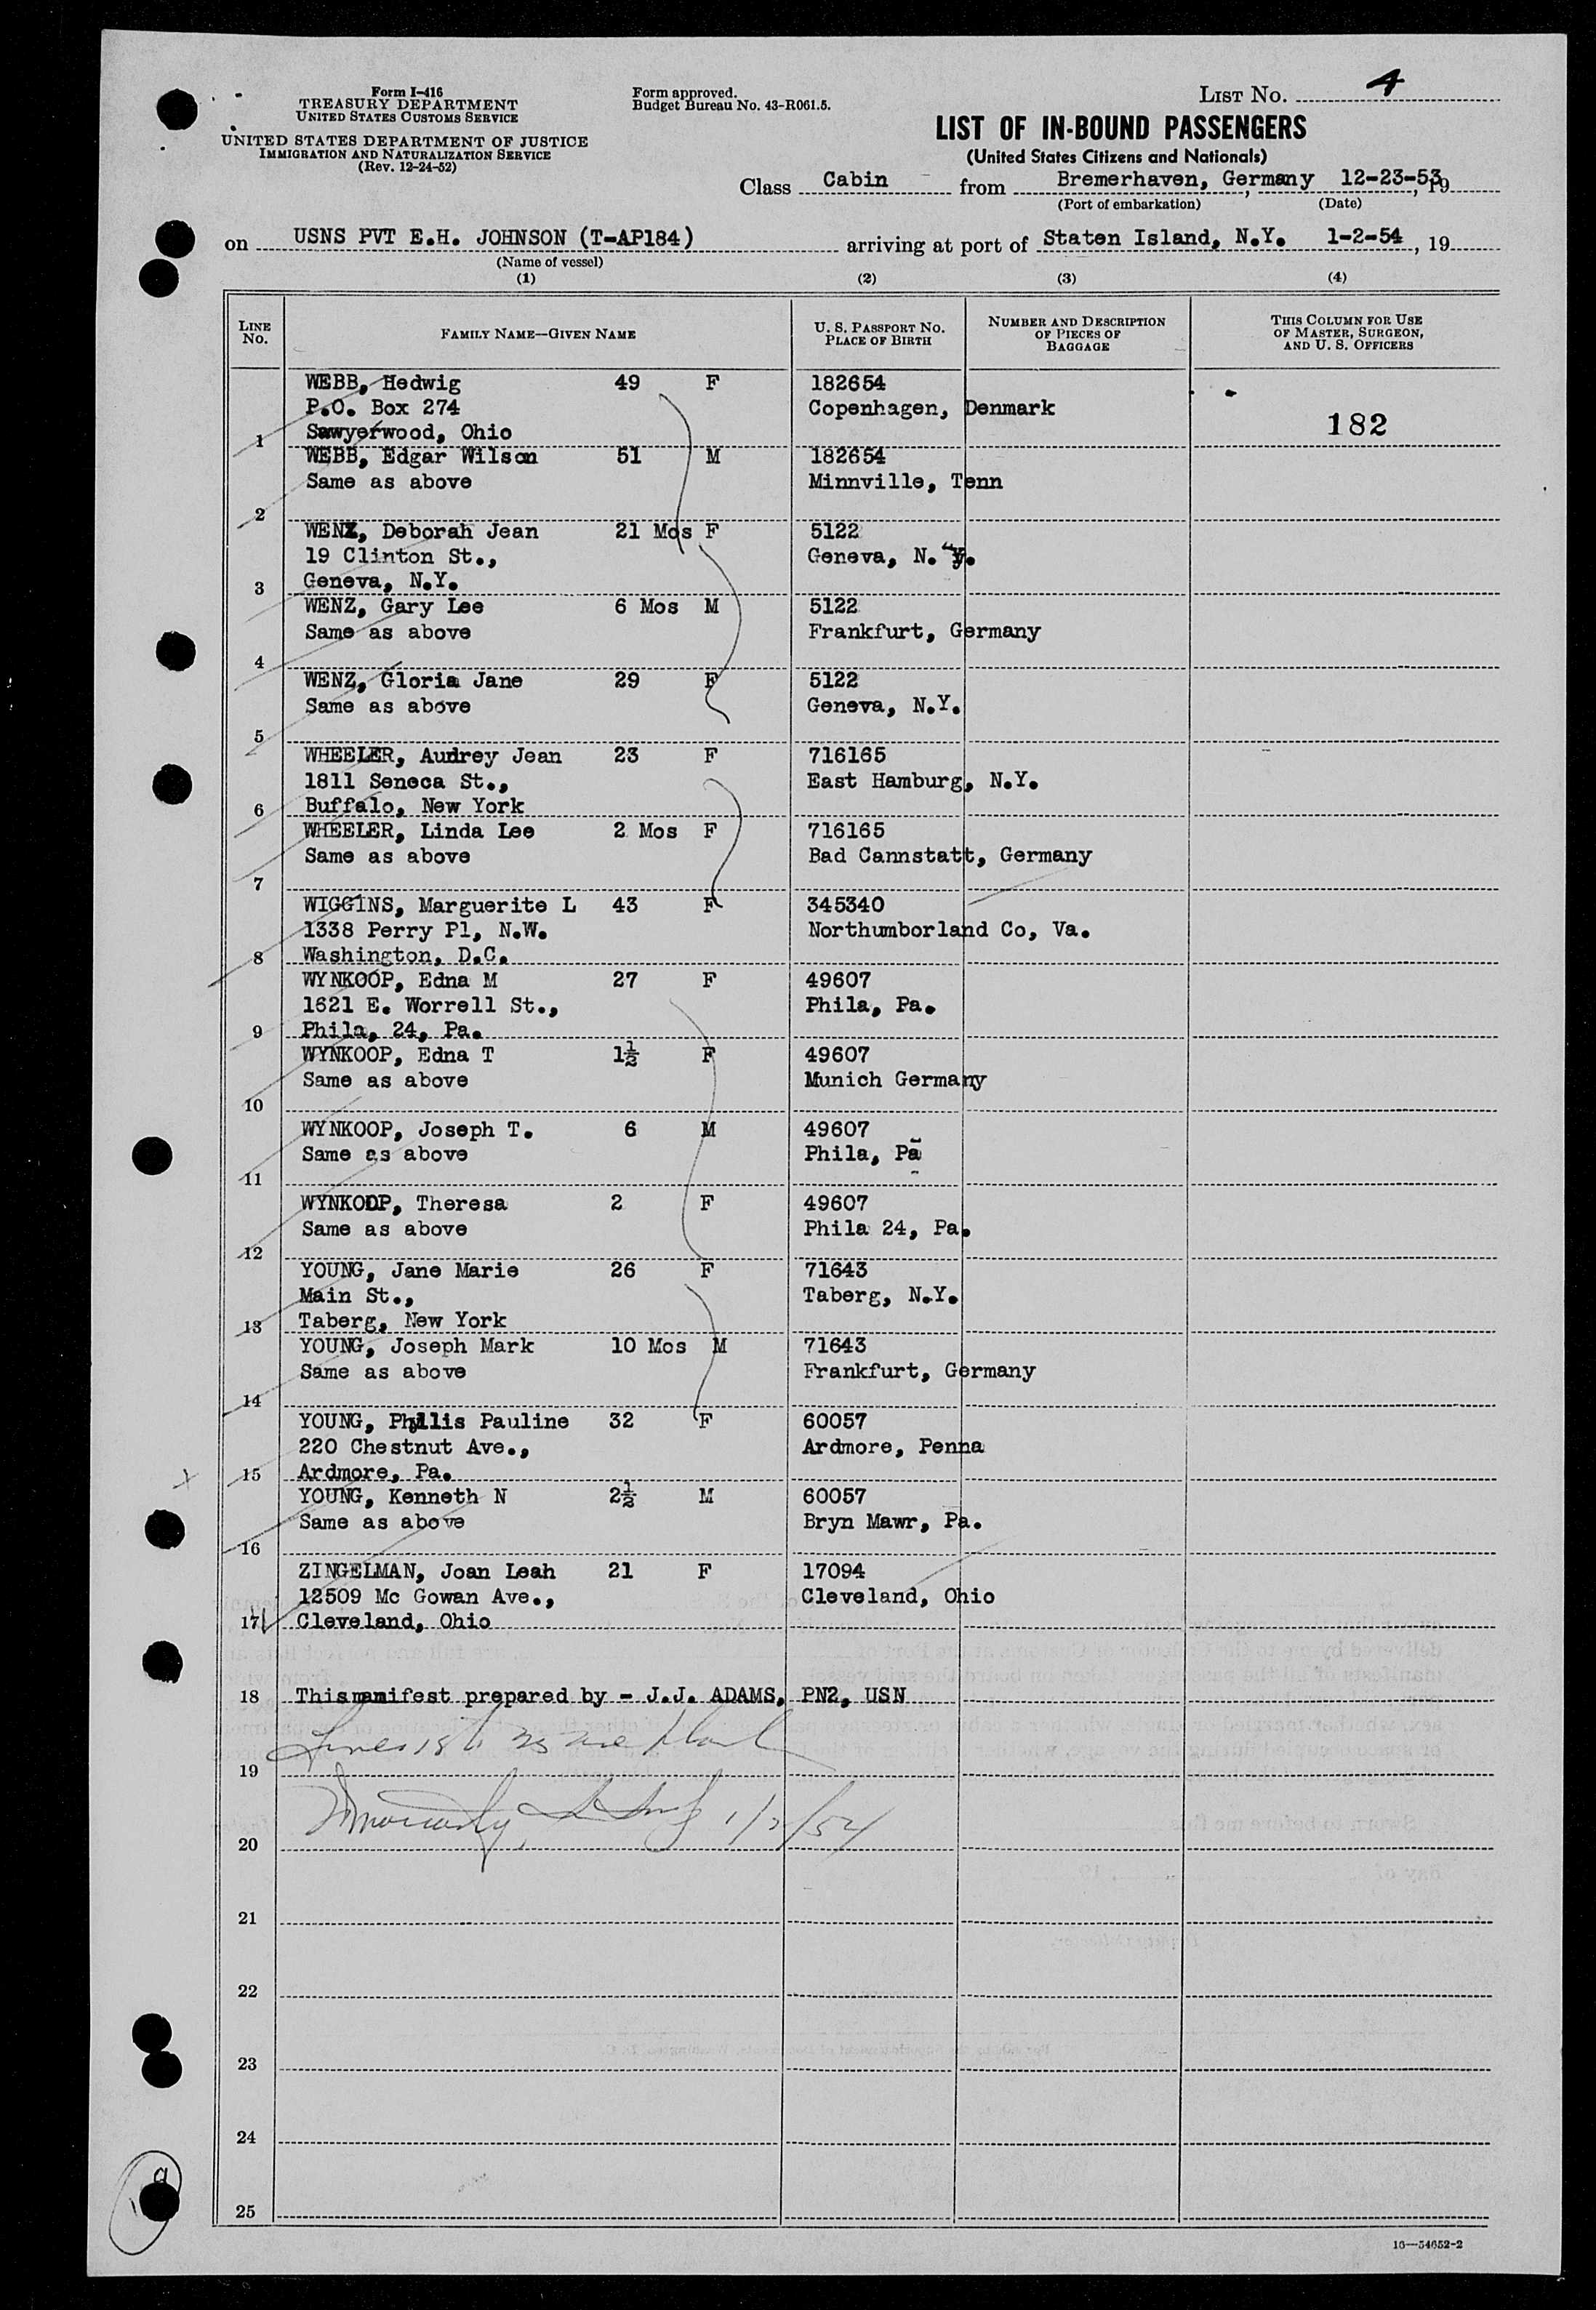 Form I-416
TREASURY DEPARTMENT
UNITED STATES CUSTOMS SERVICE
UNITED STATES DEPARTMENT OF JUSTICE
IMMIGRATION AND NATURALIZATION SERVICE
(Rev. 12-24-52)
Form approved.
Budget Bureau No. 43-R061.5.
LIST No. 4
LIST OF IN-BOUND PASSENGERS
(United States Citizens and Nationals)
Class Cabin from Bremerhaven, Germany, 12-23-53, 19
(Port of embarkation) (Date)
on USNS PVT E.H. JOHNSON (T-AP184) arriving at port of Staten Island, N.Y. 1-2-54, 19
(Name of vessel)
(1) (2) (3) (4)
LINE No.
FAMILY NAME—GIVEN NAME
U. S. PASSPORT No.
PLACE OF BIRTH
NUMBER AND DESCRIPTION OF PIECES OF BAGGAGE
THIS COLUMN FOR USE OF MASTER, SURGEON, AND U. S. OFFICERS
WEBB, Hedwig 49 F 182654
P.O. Box 274 Copenhagen, Denmark 182
1 Sawyerwood, Ohio
WEBB, Edgar Wilson 51 M 182654
Same as above Minnville, Tenn
2
WENZ, Deborah Jean 21 Mos F 5122
19 Clinton St., Geneva, N. Y.
3 Geneva, N.Y.
WENZ, Gary Lee 6 Mos M 5122
Same as above Frankfurt, Germany
4
WENZ, Gloria Jane 29 F 5122
Same as above Geneva, N.Y.
5
WHEELER, Audrey Jean 23 F 716165
1811 Seneca St., East Hamburg, N.Y.
6 Buffalo, New York
WHEELER, Linda Lee 2 Mos F 716165
Same as above Bad Cannstatt, Germany
7
WIGGINS, Marguerite L 43 F 345340
1338 Perry Pl, N.W. Northumborland Co, Va.
8 Washington, D.C.
WYNKOOP, Edna M 27 F 49607
1621 E. Worrell St., Phila, Pa.
9 Phila, 24, Pa.
WYNKOOP, Edna T 1½ F 49607
Same as above Munich Germany
10
WYNKOOP, Joseph T. 6 M 49607
Same as above Phila, Pa
11
WYNKOOP, Theresa 2 F 49607
Same as above Phila 24, Pa.
12
YOUNG, Jane Marie 26 F 71643
Main St., Taberg, N.Y.
13 Taberg, New York
YOUNG, Joseph Mark 10 Mos M 71643
Same as above Frankfurt, Germany
14
YOUNG, Phyllis Pauline 32 F 60057
220 Chestnut Ave., Ardmore, Penna
15 Ardmore, Pa.
YOUNG, Kenneth N 2½ M 60057
Same as above Bryn Mawr, Pa.
16
ZINGELMAN, Joan Leah 21 F 17094
12509 Mc Gowan Ave., Cleveland, Ohio
17 Cleveland, Ohio
18 This manifest prepared by - J.J. ADAMS, PN2, USN
Lines 18 to 25 are blank
19
1/2/54
20
21
22
23
24
25
16—54652-2